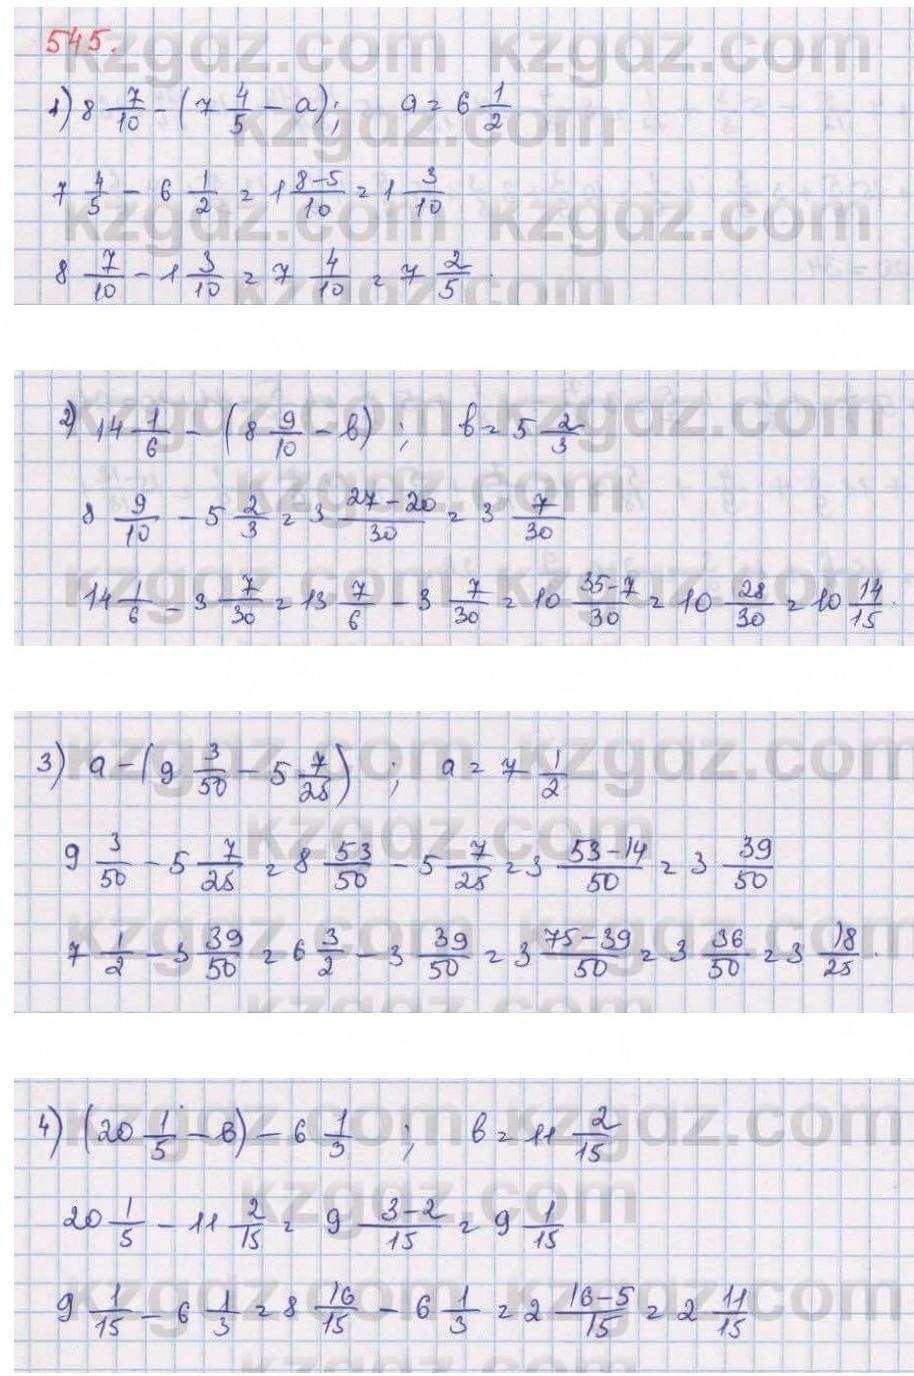 545.
1) 8 7/10 - (7 4/5 - a); a = 6 1/2
7 4/5 - 6 1/2 = 1 8-5/10 = 1 3/10
8 7/10 - 1 3/10 = 7 4/10 = 7 2/5.
2) 14 1/6 - (8 9/10 - b); b = 5 2/3
8 9/10 - 5 2/3 = 3 27-20/30 = 3 7/30
14 1/6 - 3 7/30 = 13 7/6 - 3 7/30 = 10 35-7/30 = 10 28/30 = 10 14/15.
3) a - (9 3/50 - 5 7/25); a = 7 1/2
9 3/50 - 5 7/25 = 8 53/50 - 5 7/25 = 3 53-14/50 = 3 39/50
7 1/2 - 3 39/50 = 6 3/2 - 3 39/50 = 3 75-39/50 = 3 36/50 = 3 18/25.
4) (20 1/5 - b) - 6 1/3; b = 11 2/15
20 1/5 - 11 2/15 = 9 3-2/15 = 9 1/15
9 1/15 - 6 1/3 = 8 16/15 - 6 1/3 = 2 16-5/15 = 2 11/15
kzgdz.com